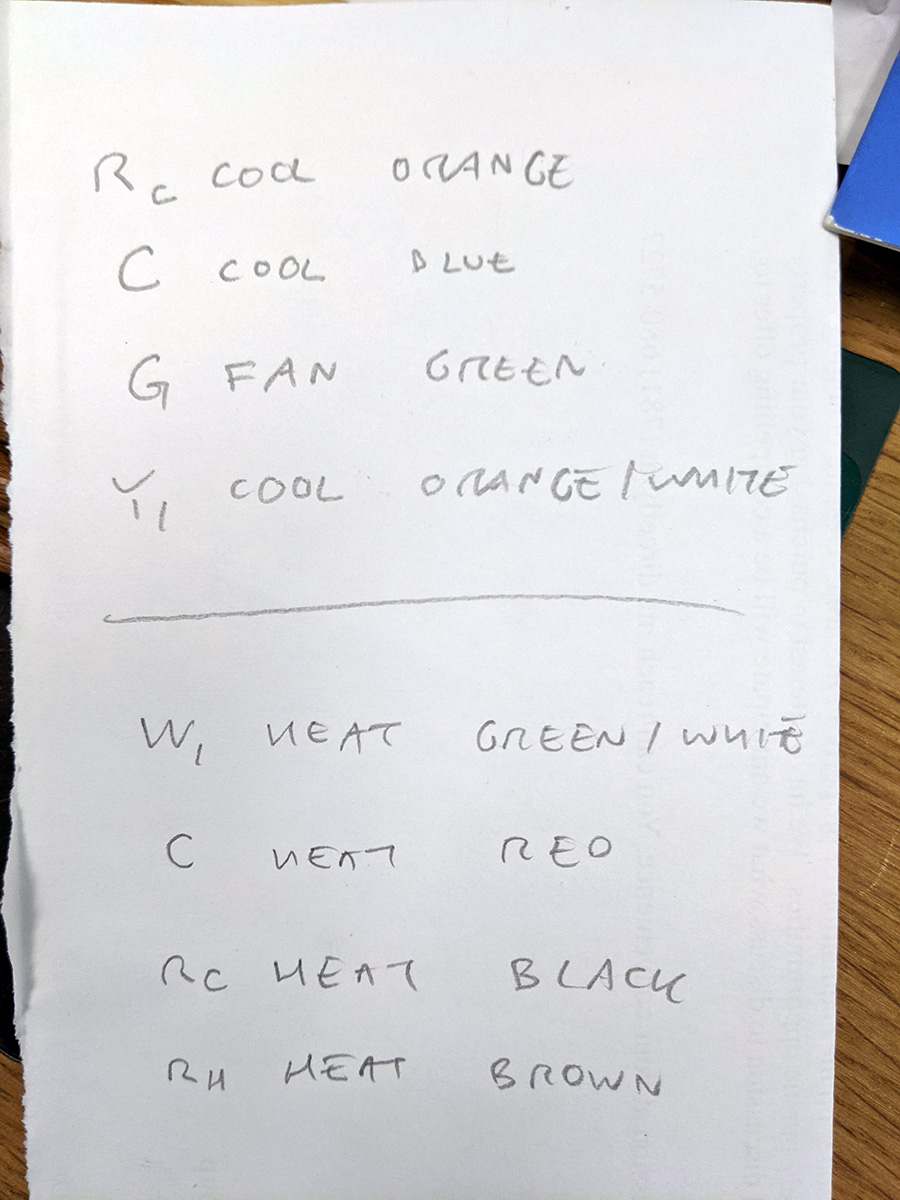 Rc COOL ORANGE
C COOL BLUE
G FAN GREEN
Y1 COOL ORANGE/WHITE
W1 HEAT GREEN/WHITE
C HEAT RED
RC HEAT BLACK
RH HEAT BROWN